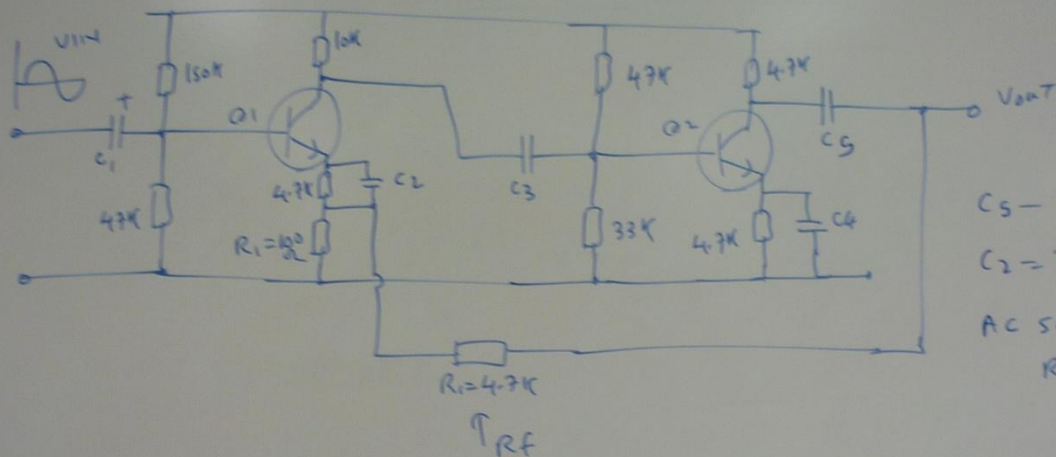 VIN
150K
10K
47K
4.7K
Vout
Q1
Q2
C5
C1
C3
4.7K
C2
47K
R1=100Ω
33K
4.7K
C4
C5 —
C2 =
AC S
R
R1=4.7K
↑Rf